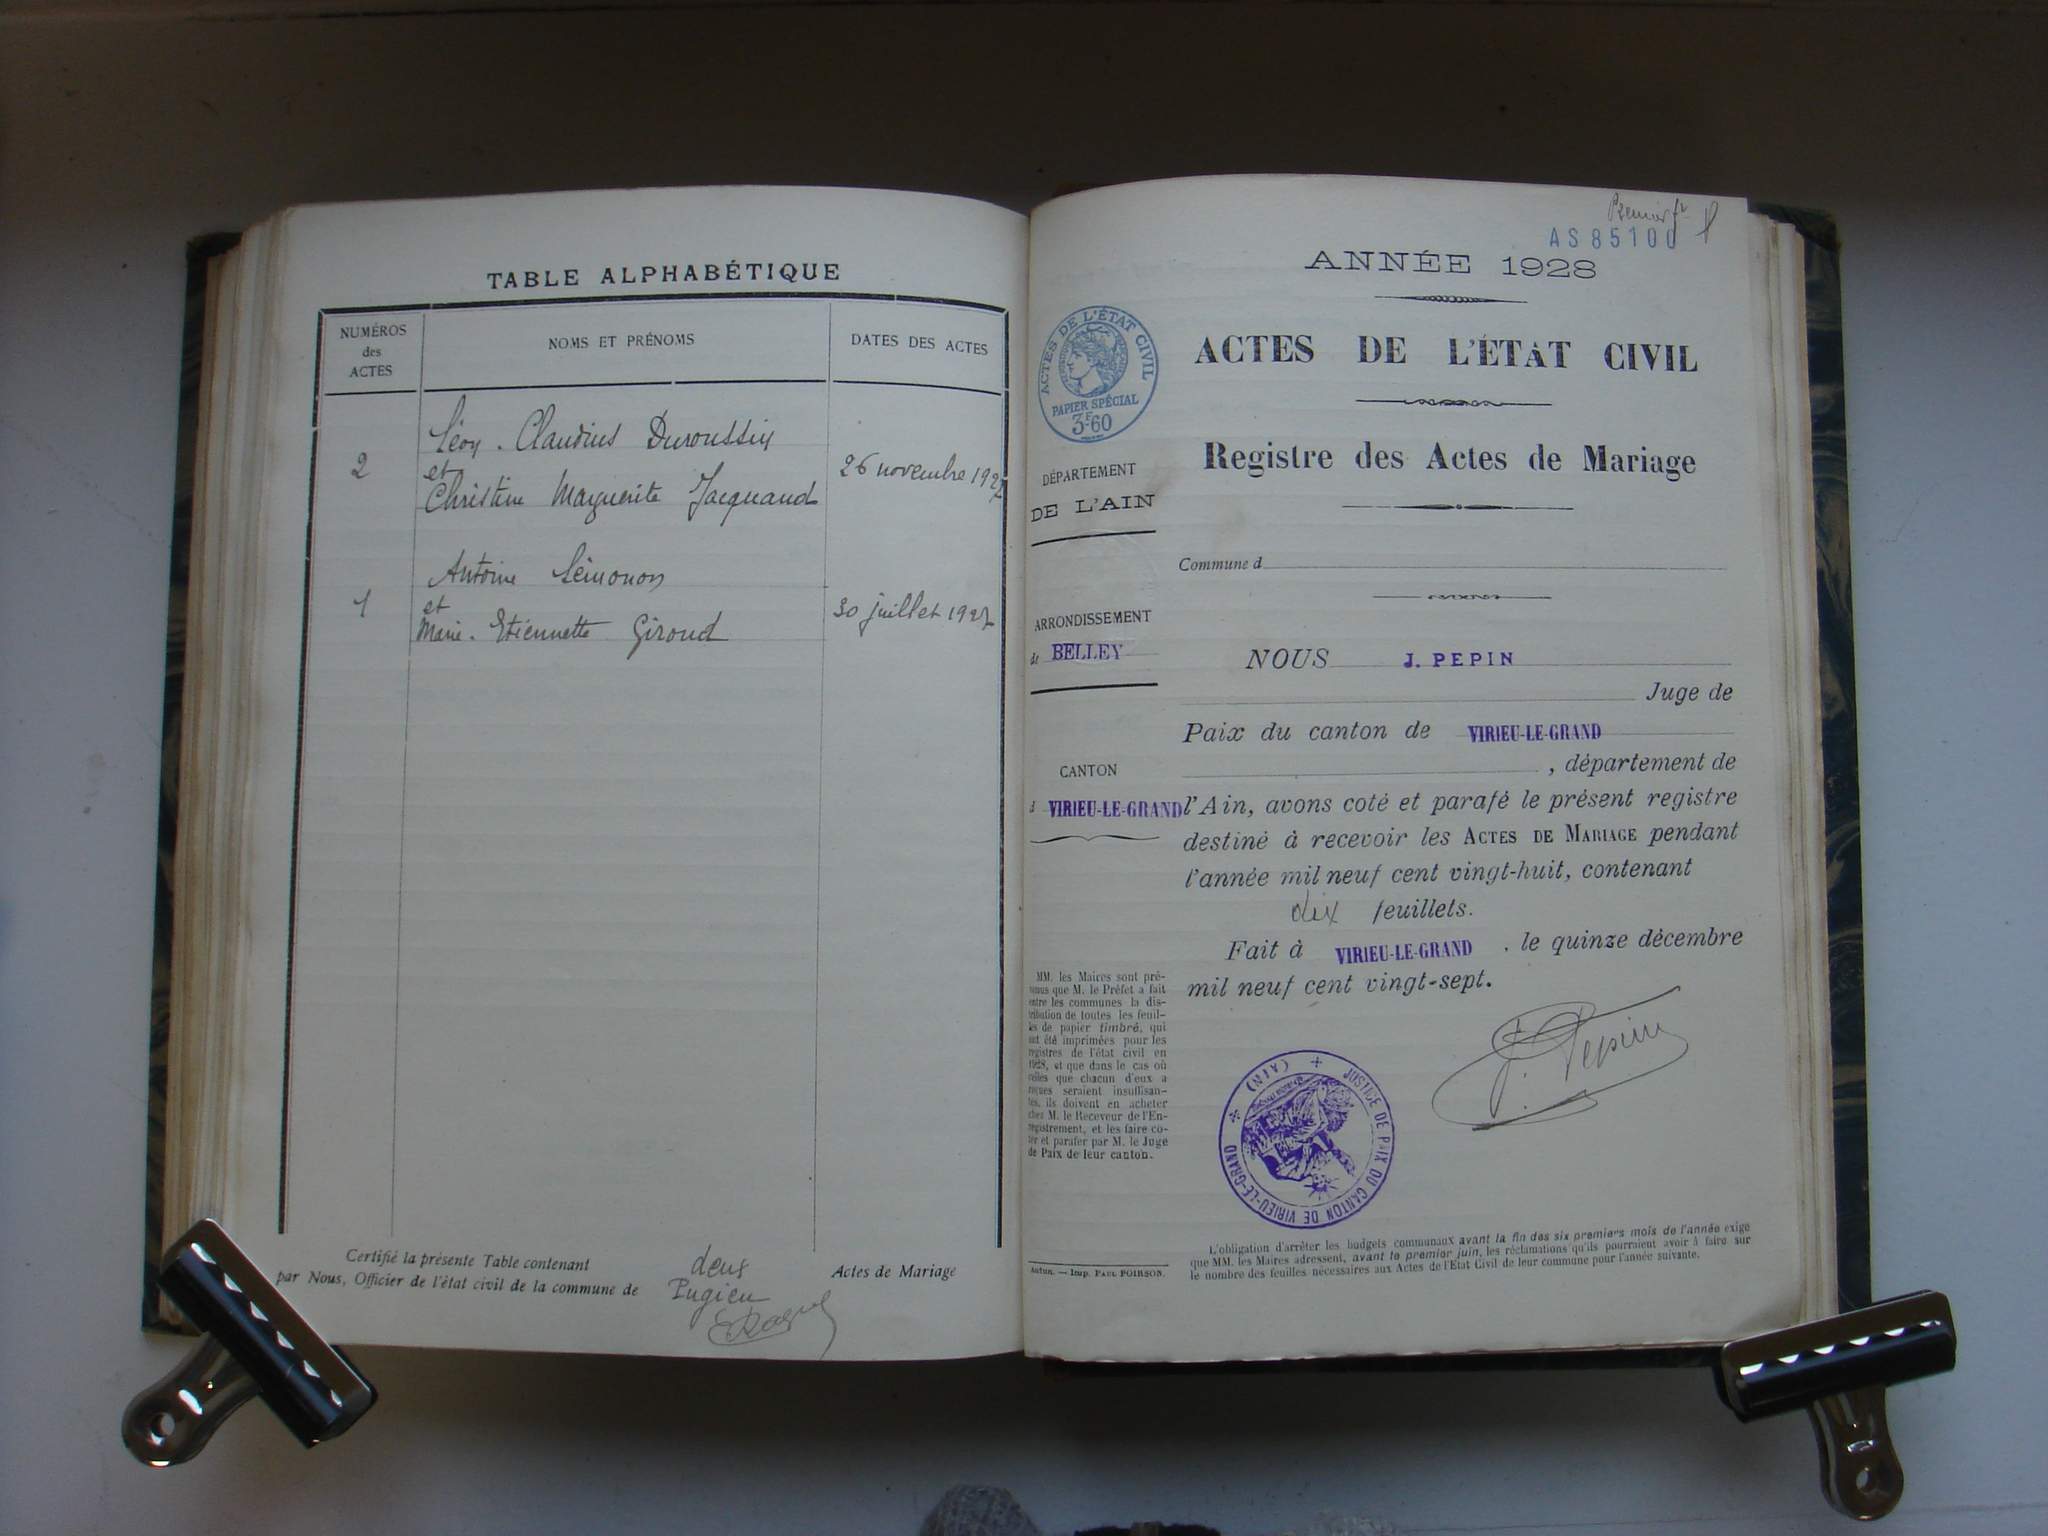 TABLE ALPHABÉTIQUE
NUMÉROS
des
ACTES
NOMS ET PRÉNOMS
DATES DES ACTES
2
Léon-Claudius Duroussin
et
Christine Marguerite Jacquand
26 novembre 1927
1
Antoine Lémonon
et
Marie-Etiennette Giroud
30 juillet 1927
Certifié la présente Table contenant deux Actes de Mariage
par Nous, Officier de l'état civil de la commune de Pugieu
Premier ft
AS 85100
ANNÉE 1928
ACTES DE L'ÉTAT CIVIL
PAPIER SPÉCIAL
3F60
ACTES DE L'ÉTAT CIVIL
Registre des Actes de Mariage
DÉPARTEMENT
DE L'AIN
Commune d
ARRONDISSEMENT
de BELLEY
NOUS J. PEPIN
Juge de
Paix du canton de VIRIEU-LE-GRAND
, département de
CANTON
d VIRIEU-LE-GRAND
l'Ain, avons coté et parafé le présent registre
destiné à recevoir les ACTES DE MARIAGE pendant
l'année mil neuf cent vingt-huit, contenant
dix feuillets.
Fait à VIRIEU-LE-GRAND, le quinze décembre
mil neuf cent vingt-sept.
MM. les Maires sont pré-
venus que M. le Préfet a fait
entre les communes la dis-
tribution de toutes les feuil-
les de papier timbré, qui
ont été imprimées pour les
registres de l'état civil en
1928, et que dans le cas où
celles que chacun d'eux a
reçues seraient insuffisan-
tes, ils doivent en acheter
chez M. le Receveur de l'En-
registrement, et les faire co-
ter et parafer par M. le Juge
de Paix de leur canton.
J. Pepin
JUSTICE DE PAIX DU CANTON DE VIRIEU-LE-GRAND
(AIN)
Autun. — Imp. PAUL POIRSON.
L'obligation d'arrêter les budgets communaux avant la fin des six premiers mois de l'année exige
que MM. les Maires adressent, avant le premier juin, les réclamations qu'ils pourraient avoir à faire sur
le nombre des feuilles nécessaires aux Actes de l'Etat Civil de leur commune pour l'année suivante.